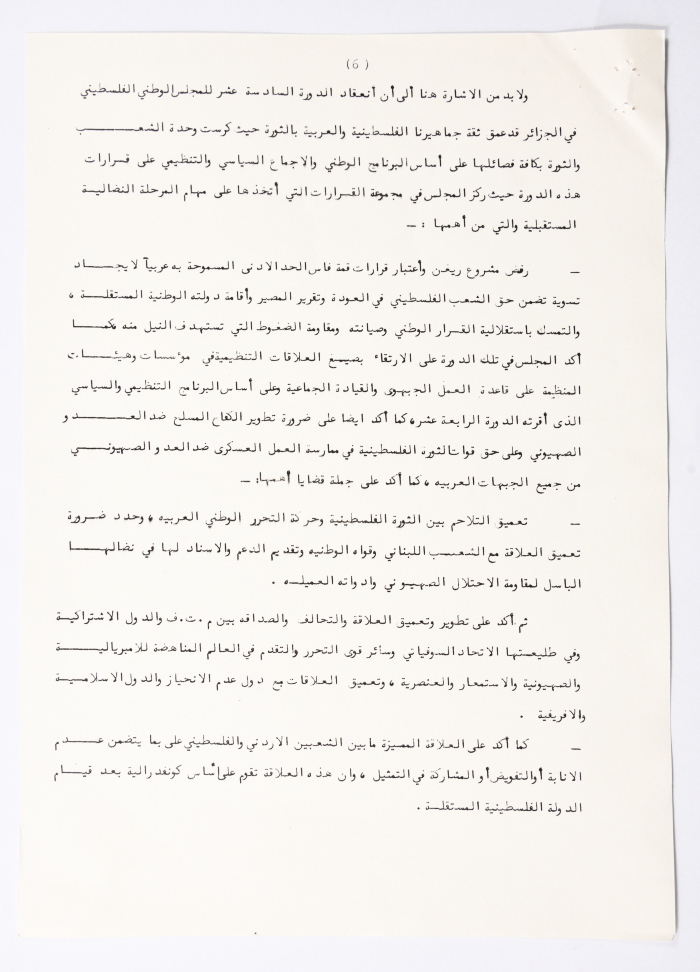 (6)
ولابد من الاشارة هنا ألى أن أنعقاد الدورة السادسة عشر للمجلس الوطني الفلسطيني
في الجزائر قد عمق ثقة جماهيرنا الفلسطينية والعربية بالثورة حيث كرست وحدة الشعـــــب
والثورة بكافة فصائلها على أساس البرنامج الوطني والاجماع السياسي والتنظيمي على قـرارات
هذه الدورة حيث ركز المجلس في مجموعة القـرارات التي أتخذها على مهام المرحلة النضاليـة
المستقبلية والتي من أهمهـا : ــ
ــ رفض مشروع ريغن وأعتبار قرارات قمة فاس الحد الادنى المسموحة به عربيآ لايجـــاد
تسوية تضمن حق الشعب الفلسطيني في العودة وتقرير المصير وأقامة دولته الوطنية المستقلـــة ،
والتمسك باستقلالية القـرار الوطني وصيانته ومقاومة الضغوط التي تستهدف النيل منه ،كمـــا
أكد المجلس في تلك الدورة على الارتقاء بصيـغ العـلاقات التنظيمية في مؤسسات وهيئــات
المنظمة على قاعدة العمل الجبهوى والقيادة الجماعية وعلى أساس البرنامج التنظيمي والسياسي
الذى أقرته الدورة الرابعة عشر ،كما أكد ايضا على ضرورة تطوير الكفاح المسلح ضد العـــدو
الصهيوني وعلى حق قوات الثورة الفلسطينية في ممارسة العمل العسكرى ضد العدو الصهيونـــي
من جميع الجبهات العربيه ،كما أكد على جملة قضايا أهمهـا: ــ
ــ تعميق التلاحم بين الثورة الفلسطينية وحركة التحرر الوطني العربيه ، وحدد ضـرورة
تعميق العلاقة مع الشعـب اللبناني وقواه الوطنيه وتقديم الدعم والاسناد لهـا في نضالهــا
الباسل لمقاومة الاحتلال الصهيـوني وادواته العميلـه .
ثم أكد على تطوير وتعميق العلاقة والتحالف والصداقه بين م.ت.ف والدول الاشتراكيـة
وفي طليعـتها الاتحاد السوفياتي وسائر قوى التحرر والتقدم في العالم المناهضة للامبرياليـــة
والصهيونية والاستعمار والعنصرية ، وتعميق العلاقات مع دول عدم الانحياز والدول الاسلاميـــة
والافريقية .
ــ كما أكد على العـلاقة المميزة مابين الشعبين الاردني والفلسطيني على بما يتضمن عـــدم
الانابة أوالتفويض أو المشاركة في التمثيل ، وان هذه العلاقة تقوم على أساس كونفدرالية بعد قيــام
الدولة الفلسطينية المستقلـة .